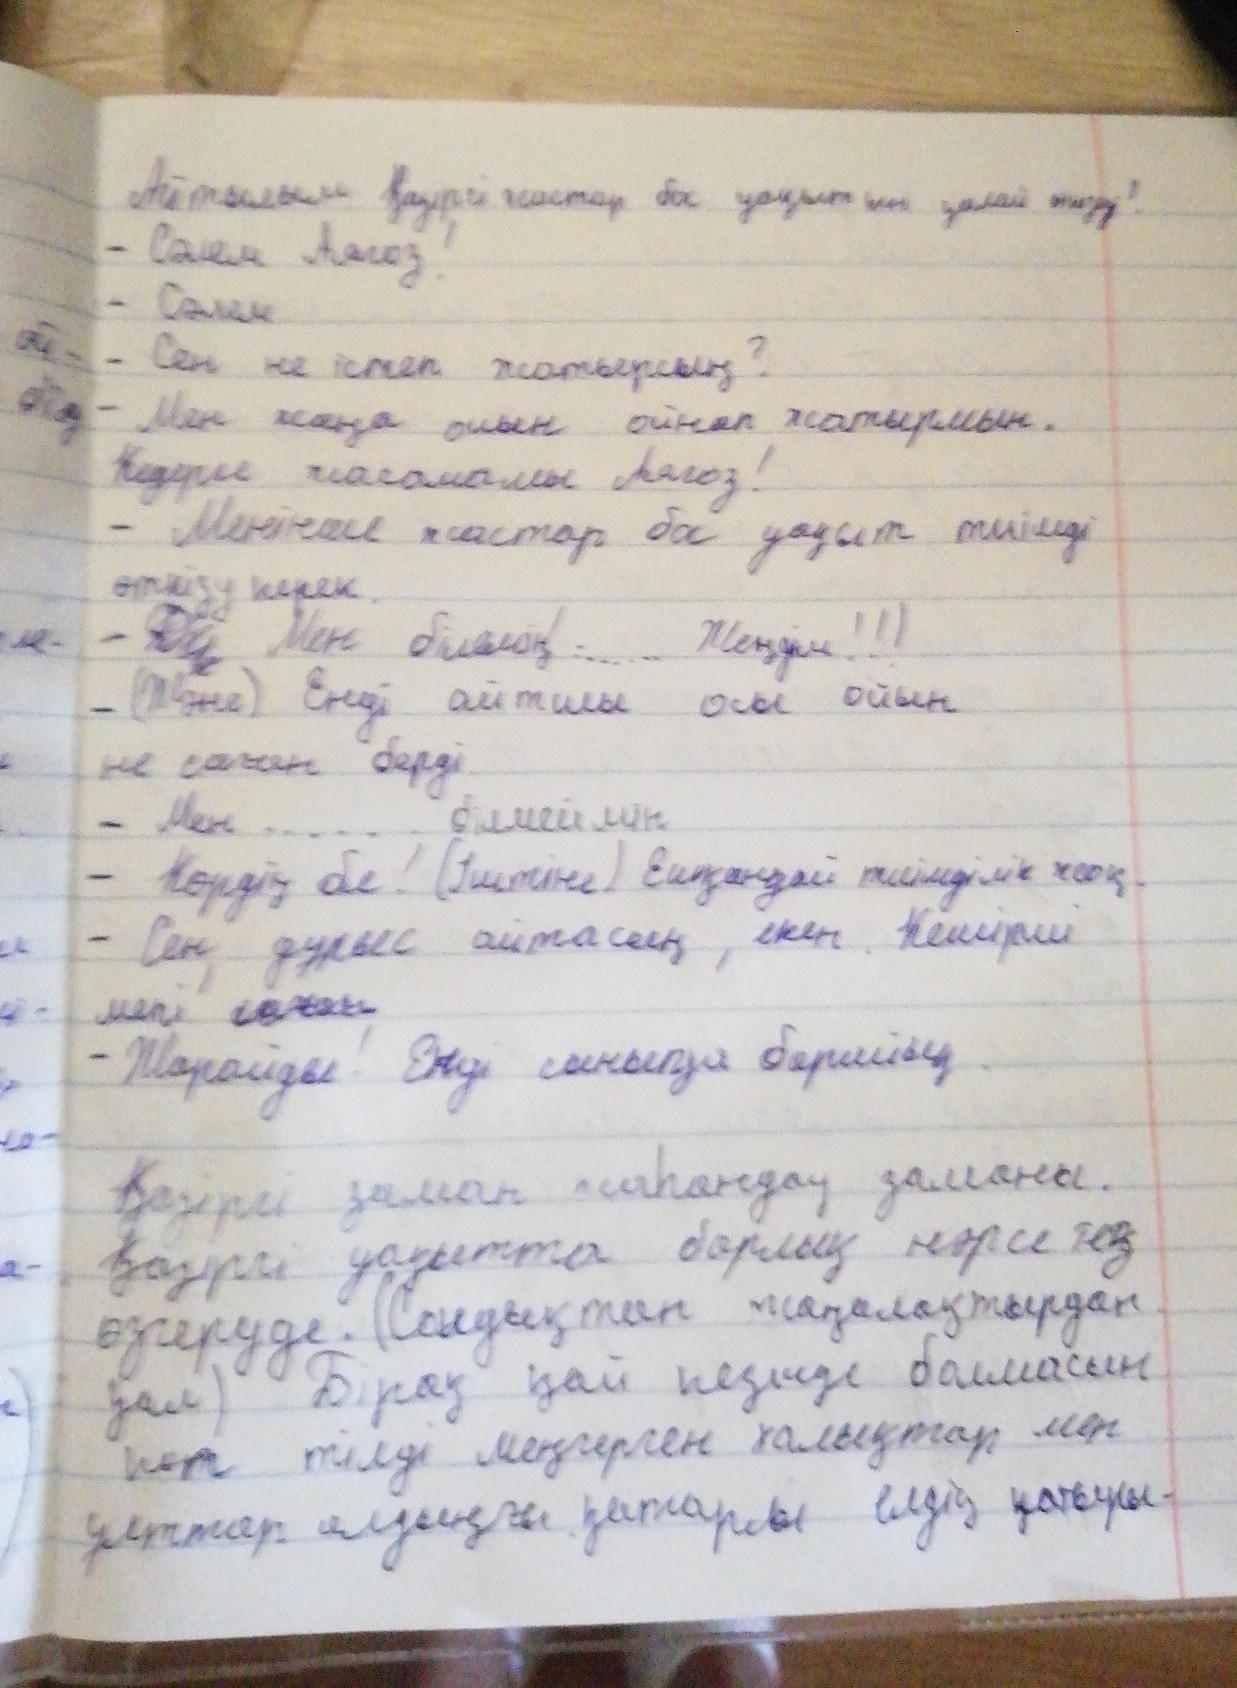 Айтылым Қазіргі жастар бос уақытын қалай өткізу?
- Сәлем Аягоз!
- Сәлем
- Сен не істеп жатырсың?
- Мен жаңа ойын ойнап жатырмын.
Кедергі жасамашы Аягоз!
- Меніңше жастар бос уақыт тиімді
өткізу керек.
- Мен білемін! ...... Жеңдім!!!
- (Және) Енді айтшы осы ойын
не саған берді
- Мен ....... білмеймін
- Көрдің бе! (Iштіне) Ешқандай тиімділік жоқ.
- Сен, дұрыс айтасың, екен. Кешірші
мені
- Жарайды! Енді сыныпқа барайық.
Қазіргі заман жаһандау заманы.
Қазіргі уақытта барлық нәрсе тез
өзгеруде. (Сондықтан жаңалақтырдан
қал) Бірақ қай кезінде болмасын
көп тілді меңгерген халықтар мен
ұлттар алдыңғы қатарлы елдің қатыры-